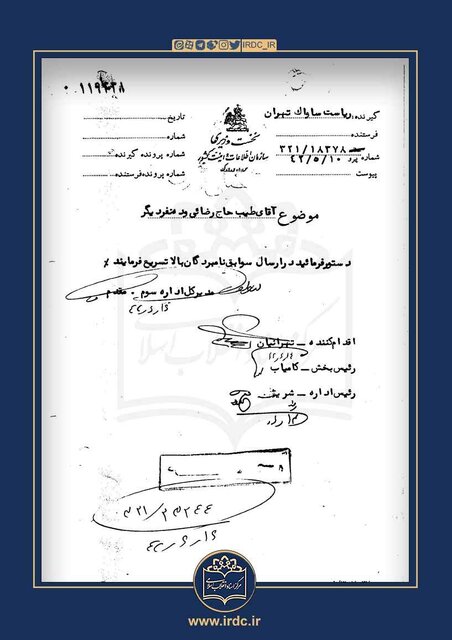 IRDC_IR
۰۱۱۹۲۲۸
گیرنده: ریاست ساواك تهران
فرستنده
شماره ۳۲۱/۱۸۳۷۸
۴۲/۵/۱۰
پیوست
نخست وزیری
سازمان اطلاعات و امنیت کشور
تاریخ
شماره
شماره پرونده گیرنده
شماره پرونده فرستنده
موضوع آقای طیب حاج رضائی و ده نفر دیگر
دستور فرمائید در ارسال سوابق نامبردگان بالا تسریع فرمایند
مدیر کل اداره سوم - مقدم
اقدام کننده - تهرانیان
رئیس بخش - کامیاب
رئیس اداره - شریفی
مرکز اسناد انقلاب اسلامی
www.irdc.ir